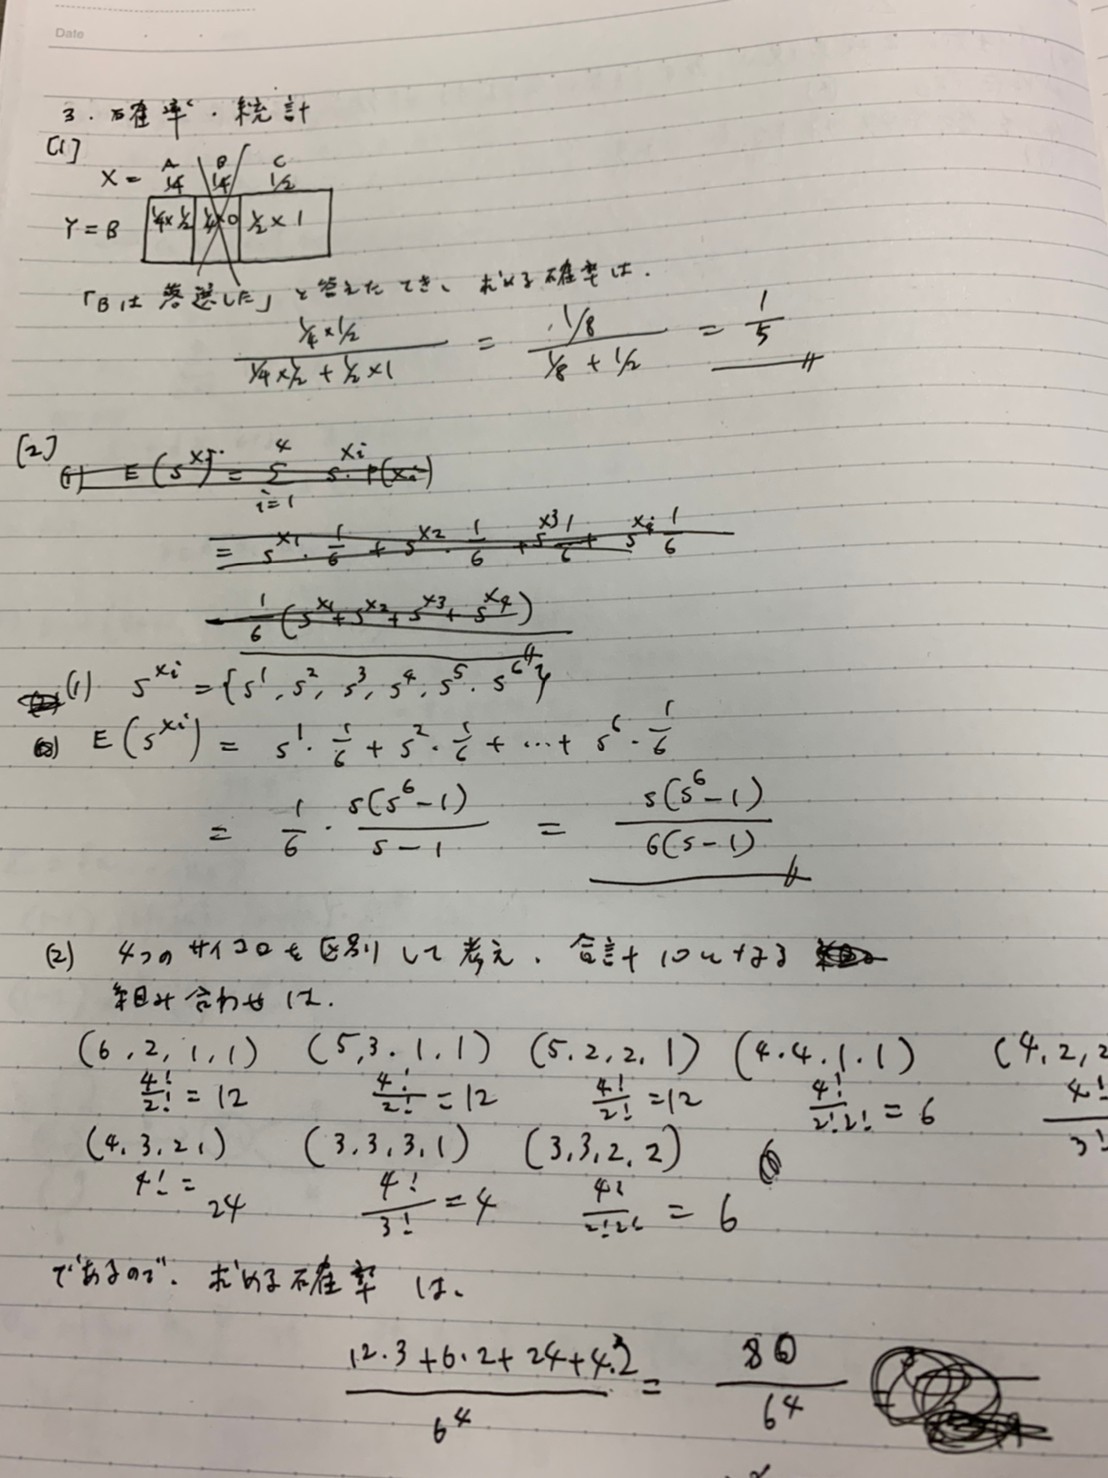 Date
3. 確率・統計
[1]
X = A 1/4 B 1/4 C 1/2
Y = B 1/4×1/2 1/4×0 1/2×1
「Bは落選した」と答えたとき、求める確率は.
(1/4×1/2)/(1/4×1/2 + 1/2×1) = (1/8)/(1/8 + 1/2) = 1/5
[2]
(1) E(s^Xi) = Σ_{i=1}^{4} s^Xi・P(Xi)
= s^X1・1/6 + s^X2・1/6 + s^X3 1/6 + s^X4 1/6
1/6 (s^X1 + s^X2 + s^X3 + s^X4)
(1) s^Xi = {s^1, s^2, s^3, s^4, s^5, s^6}
E(s^Xi) = s^1・1/6 + s^2・1/6 + … + s^6・1/6
= 1/6・s(s^6-1)/(s-1) = s(s^6-1)/(6(s-1))
(2) 4つのサイコロを区別して考え、合計10となる
組み合わせは.
(6,2,1,1) (5,3.1.1) (5.2,2,1) (4.4.1.1) (4,2,2
4!/2! = 12 4!/2! = 12 4!/2! = 12 4!/2!2! = 6 4!/3!
(4,3,2,1) (3,3,3,1) (3,3,2,2)
4! = 24 4!/3! = 4 4!/2!2! = 6
であるので、求める確率は、
(12・3+6・2+24+4・2)/6^4 = 80/6^4